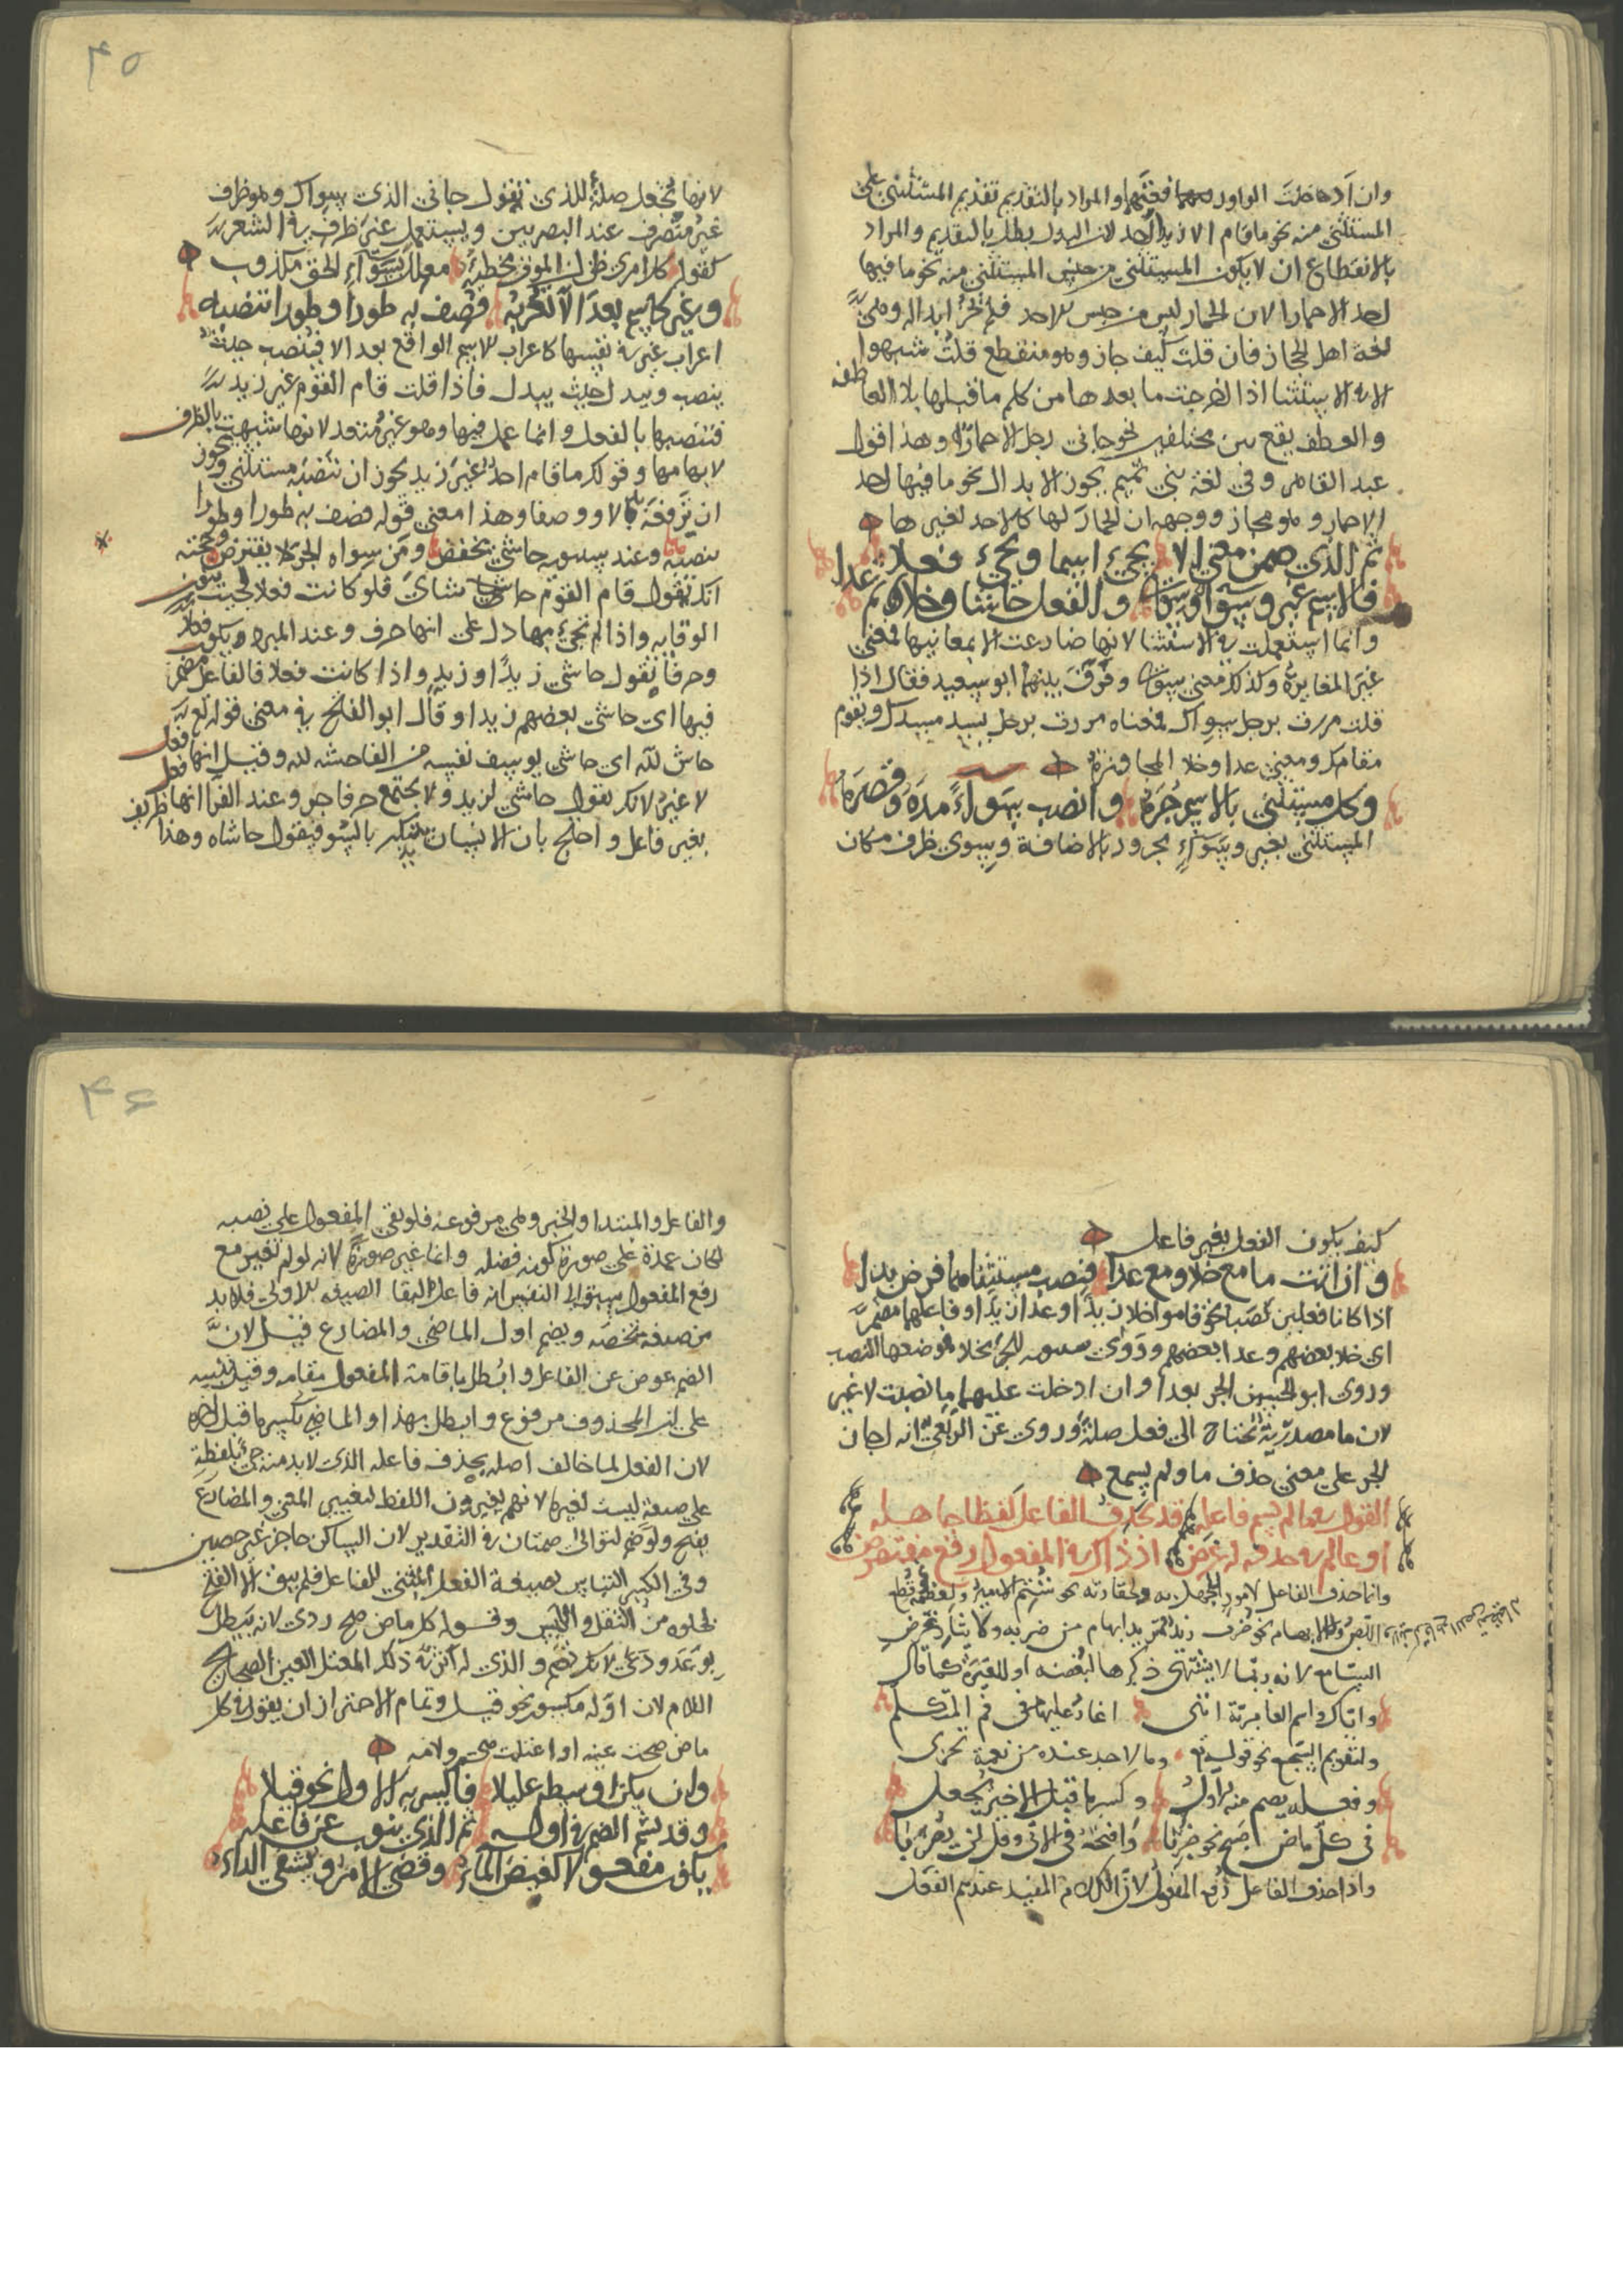 وان ادخلت الواو فتحتها والمراد بالتقديم تقديم المستثنى على
المستثنى منه نحو ما قام الا زيدا احد لان البدل بطل بالتقديم والمراد
بالانقطاع ان لا يكون المستثنى من جنس المستثنى منه نحو ما فيها
احد الا حمارا لان الحمار ليس من جنس الاحد فلم يجز ابداله وهي
لغة اهل الحجاز فان قلت كيف جاز وهو منقطع قلت شبهوا
الا في الاستثنا اذا اخرجت ما بعدها من كلم ما قبلها بلا العاطفه
والعطف يقع بين مختلفين نحو جاني رجل لا حمار وهذا قول
عبد القاهر وفي لغة بني تميم يجوز الابدال نحو ما فيها احد
الا حمار وهو مجاز ووجهه ان الحمار لها كالاحد لغيرها
ثم الذي ضمن معنى الا يجيء اسما ويجيء فعلا
فالاسم غير وسوى وسواء والفعل حاشا وخلا ثم عدا
وانما استعملت في الاستثنا لانها ضارعت الا بمعانيها فمعنى
غير المغايرة وكذلك معنى سوى وفرق بينهما ابو سعيد فقال اذا
قلت مررت برجل سواك فمعناه مررت برجل يسد مسدك ويقوم
مقامك ومعنى عدا وخلا المجاوزة
وكل مستثنى بالاسم جره وانصب سواء مده وقصره
المستثنى بغير وسواء مجرور بالاضافة وسوى ظرف مكان
٤٥
لانها تجعل صلة للذي تقول جاني الذي سواك وهو ظرف
غير متصرف عند البصريين ويستعمل غير ظرف في الشعر
كقوله كل امرئ ظن ان الموت مخطئه معلل بسواء الحق مكذوب
وغير كاسم بعد الا تعربه فصف به طورا وطورا تنصبه
اعراب غير في نفسها كاعراب الاسم الواقع بعد الا فينصب حيث
ينصب ويبدل حيث يبدل فاذا قلت قام القوم غير زيد
فتنصبها بالفعل وانما عمل فيها وهو غير متعد لانها شبهت بالظرف
لابهامها وقولك ما قام احد غير زيد يجوز ان تنصبه مستثنى ويجوز
ان ترفعه بدلا ووصفا وهذا معنى قوله فصف به طورا وطورا
تنصبه وعند سيبويه حاشى تخفض ومن سواه الجر لا يفترض وحجته
انك تقول قام القوم حاشاي فلو كانت فعلا لجيت بنون
الوقايه واذا لم تجيء بها دل على انها حرف وعند المبرد ويكون فعلا
وحرفا تقول حاشى زيدا وزيد واذا كانت فعلا فالفاعل مضمر
فيها اي حاشى بعضهم زيدا وقال ابو الفتح في معنى قوله تع
حاش لله اي حاشى يوسف نفسه من الفاحشه لله وقيل انها فعل
لا غير لانك تقول حاشى لزيد ولا يجتمع حرفا جر وعند الفرا انها فعل
بغير فاعل واحتج بان الانسان يقول حاشاه وهذا
كيف يكون الفعل بغير فاعل
وان اتت ما مع خلا ومع عدا فنصب مستثناهما فرض بدا
اذا كانا فعلين نصبا نحو قاموا خلا زيدا وعدا زيدا وفاعلهما مضمر
اي خلا بعضهم وعدا بعضهم وروى سيبويه الجر بخلا فموضعها النصب
وروى ابو الحسين الجر بعدا وان ادخلت عليهما ما نصبت لا غير
لان ما مصدرية تحتاج الى فعل صلة وروى عن الربعي انه اجاز
الجر على معنى حذف ما ولم يسمع
القول في ما لم يسم فاعله قد يحذف الفاعل لفظا جاهله
او عالم في حذفه له غرض اذ ذاك في المفعول رفع مفترض
وانما حذف الفاعل لامور للجهل به ولحقارته نحو شتم الامير ولعظمه نحو قطع
اللص وللابهام نحو ضرب زيد تريد ابهام من ضربه ولايثار غرض
السامع لانه ربما لا يشتهي ذكرها لبغضه او للغيرة كما قال
واياك واسم العامرية انني اغار عليها في فم المتكلم
ولتقويم السجع نحو قوله تع وما لاحد عنده من نعمة تجزى
وفعله يضم منه الاول وكسر ما قبل الاخير يجعل
في كل ماض صح نحو ضربا وافتحه في الآتي وقل لن يضربا
واذا حذف الفاعل رفع المفعول لان الكلام المفيد عندهم الفعل
٤٦
والفاعل والمبتدا والخبر وهي مرفوعه فلو بقي المفعول على نصبه
لكان عمدة على صورة كونه فضله وانما غير صورة لانه لو لم تغير مع
رفع المفعول سبق الى النفس انه فاعل لبقا الصيغه الاولى فلا بد
من صيغة تخصه ويضم اول الماضي والمضارع قيل لان
الضم عوض عن الفاعل وابطل باقامة المفعول مقامه وقيل تنبيه
على ان المحذوف مرفوع وابطل بهذا والماضي يكسر ما قبل اخره
لان الفعل لما خالف اصله بحذف فاعله الذي لا بد منه جيء بلفظه
على صيغة ليست لغيرها لانهم يغيرون اللفظ لتغيير المعنى والمضارع
يفتح ولو ضم لتوالى ضمتان في التقدير لان الساكن حاجز غير حصين
وفي الكسر التباس بصيغة الفعل المبني للفاعل فلم يبق الا الفتح
لخلوه من الثقل واللبس وقوله كل ماض صح ردي لانه يبطل
بوعد ودعي لانك تضم والذي له اثر في ذكر المعتل العين الصحيح
اللام لان اوله مكسور نحو قيل وتمام الاحتراز ان يقول في كل
ماض صحت عينه او اعتلت هي ولامه
وان يكن اوسطه عليلا فاكسر به الاول نحو قيلا
وقد يشم الضم في اوله ثم الذي ينوب عن فاعله
يكون مفعولا كغيض الماء وقضي الامر ويشفى الداء